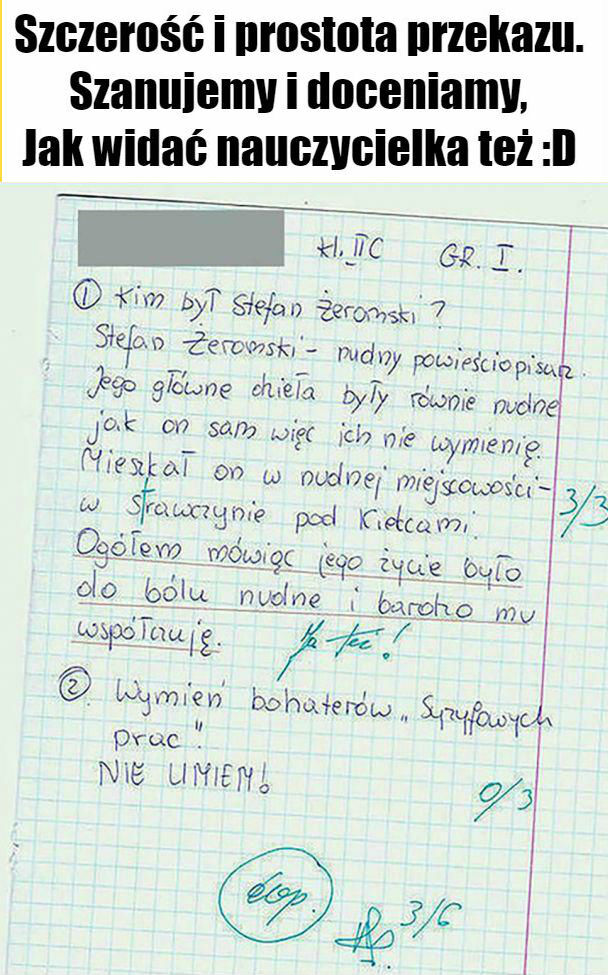 Szczerość i prostota przekazu.
Szanujemy i doceniamy,
Jak widać nauczycielka też :D
kl. II C GR. I.
① Kim był Stefan Żeromski?
Stefan Żeromski - nudny powieściopisarz.
Jego główne dzieła były równie nudne
jak on sam więc ich nie wymienię.
Mieszkał on w nudnej miejscowości -
w Strawczynie pod Kielcami.
3/3
Ogółem mówiąc jego życie było
do bólu nudne i bardzo mu
współczuję. Ja też!
② Wymień bohaterów "Syzyfowych
prac".
NIE UMIEM!
0/3
dop. 3/6